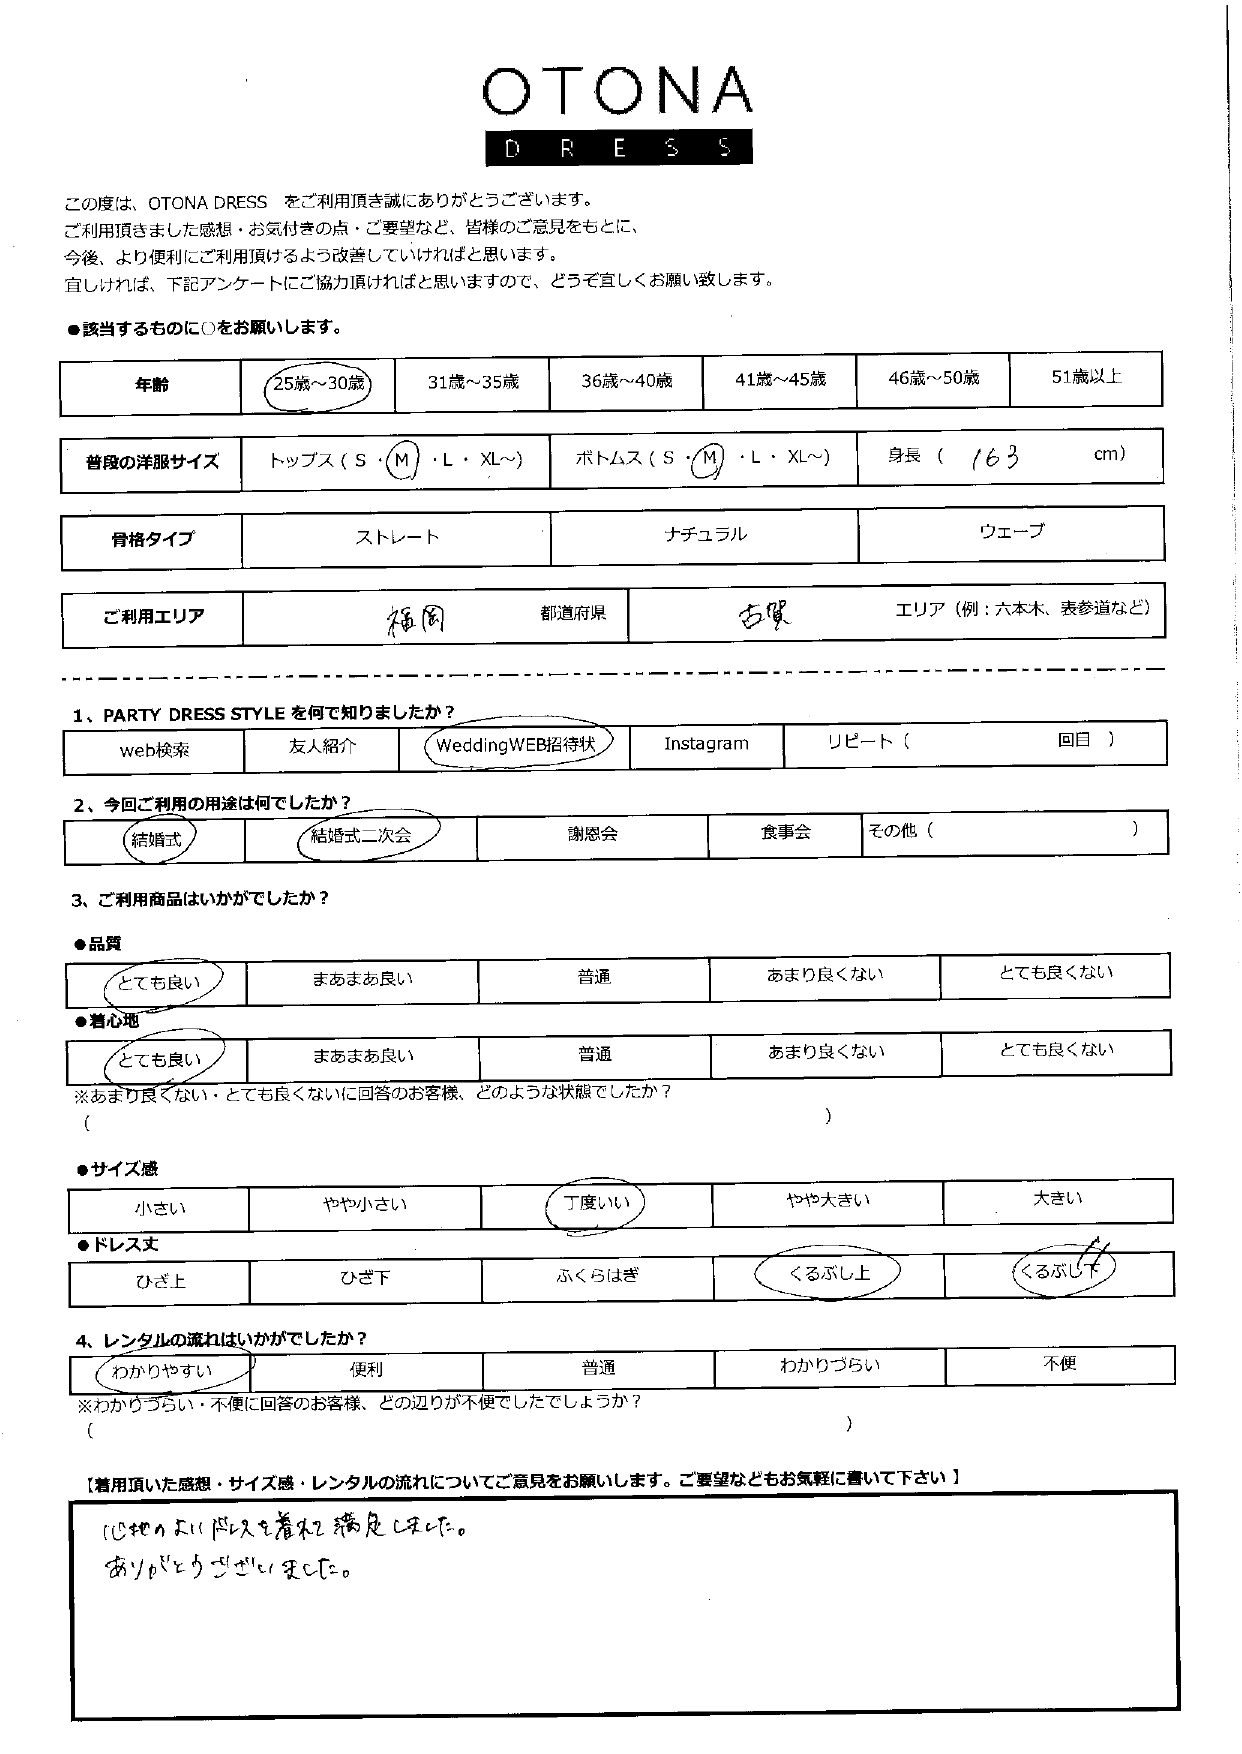 OTONA
DRESS
この度は、OTONA DRESS　をご利用頂き誠にありがとうございます。
ご利用頂きました感想・お気付きの点・ご要望など、皆様のご意見をもとに、
今後、より便利にご利用頂けるよう改善していければと思います。
宜しければ、下記アンケートにご協力頂ければと思いますので、どうぞ宜しくお願い致します。
●該当するものに○をお願いします。
年齢 25歳～30歳 31歳～35歳 36歳～40歳 41歳～45歳 46歳～50歳 51歳以上
普段の洋服サイズ トップス ( S ・ M ・L・ XL～) ボトムス ( S ・ M ・L・ XL～) 身長 ( 163 cm)
骨格タイプ ストレート ナチュラル ウェーブ
ご利用エリア 福岡 都道府県 古賀 エリア（例：六本木、表参道など）
1、PARTY DRESS STYLE を何で知りましたか？
web検索 友人紹介 WeddingWEB招待状 Instagram リピート（ 回目 ）
2、今回ご利用の用途は何でしたか？
結婚式 結婚式二次会 謝恩会 食事会 その他（ ）
3、ご利用商品はいかがでしたか？
●品質
とても良い まあまあ良い 普通 あまり良くない とても良くない
●着心地
とても良い まあまあ良い 普通 あまり良くない とても良くない
※あまり良くない・とても良くないに回答のお客様、どのような状態でしたか？
( )
●サイズ感
小さい やや小さい 丁度いい やや大きい 大きい
●ドレス丈
ひざ上 ひざ下 ふくらはぎ くるぶし上 くるぶし下
4、レンタルの流れはいかがでしたか？
わかりやすい 便利 普通 わかりづらい 不便
※わかりづらい・不便に回答のお客様、どの辺りが不便でしたでしょうか？
( )
【着用頂いた感想・サイズ感・レンタルの流れについてご意見をお願いします。ご要望などもお気軽に書いて下さい 】
心地のよいドレスを着れて満足しました。
ありがとうございました。